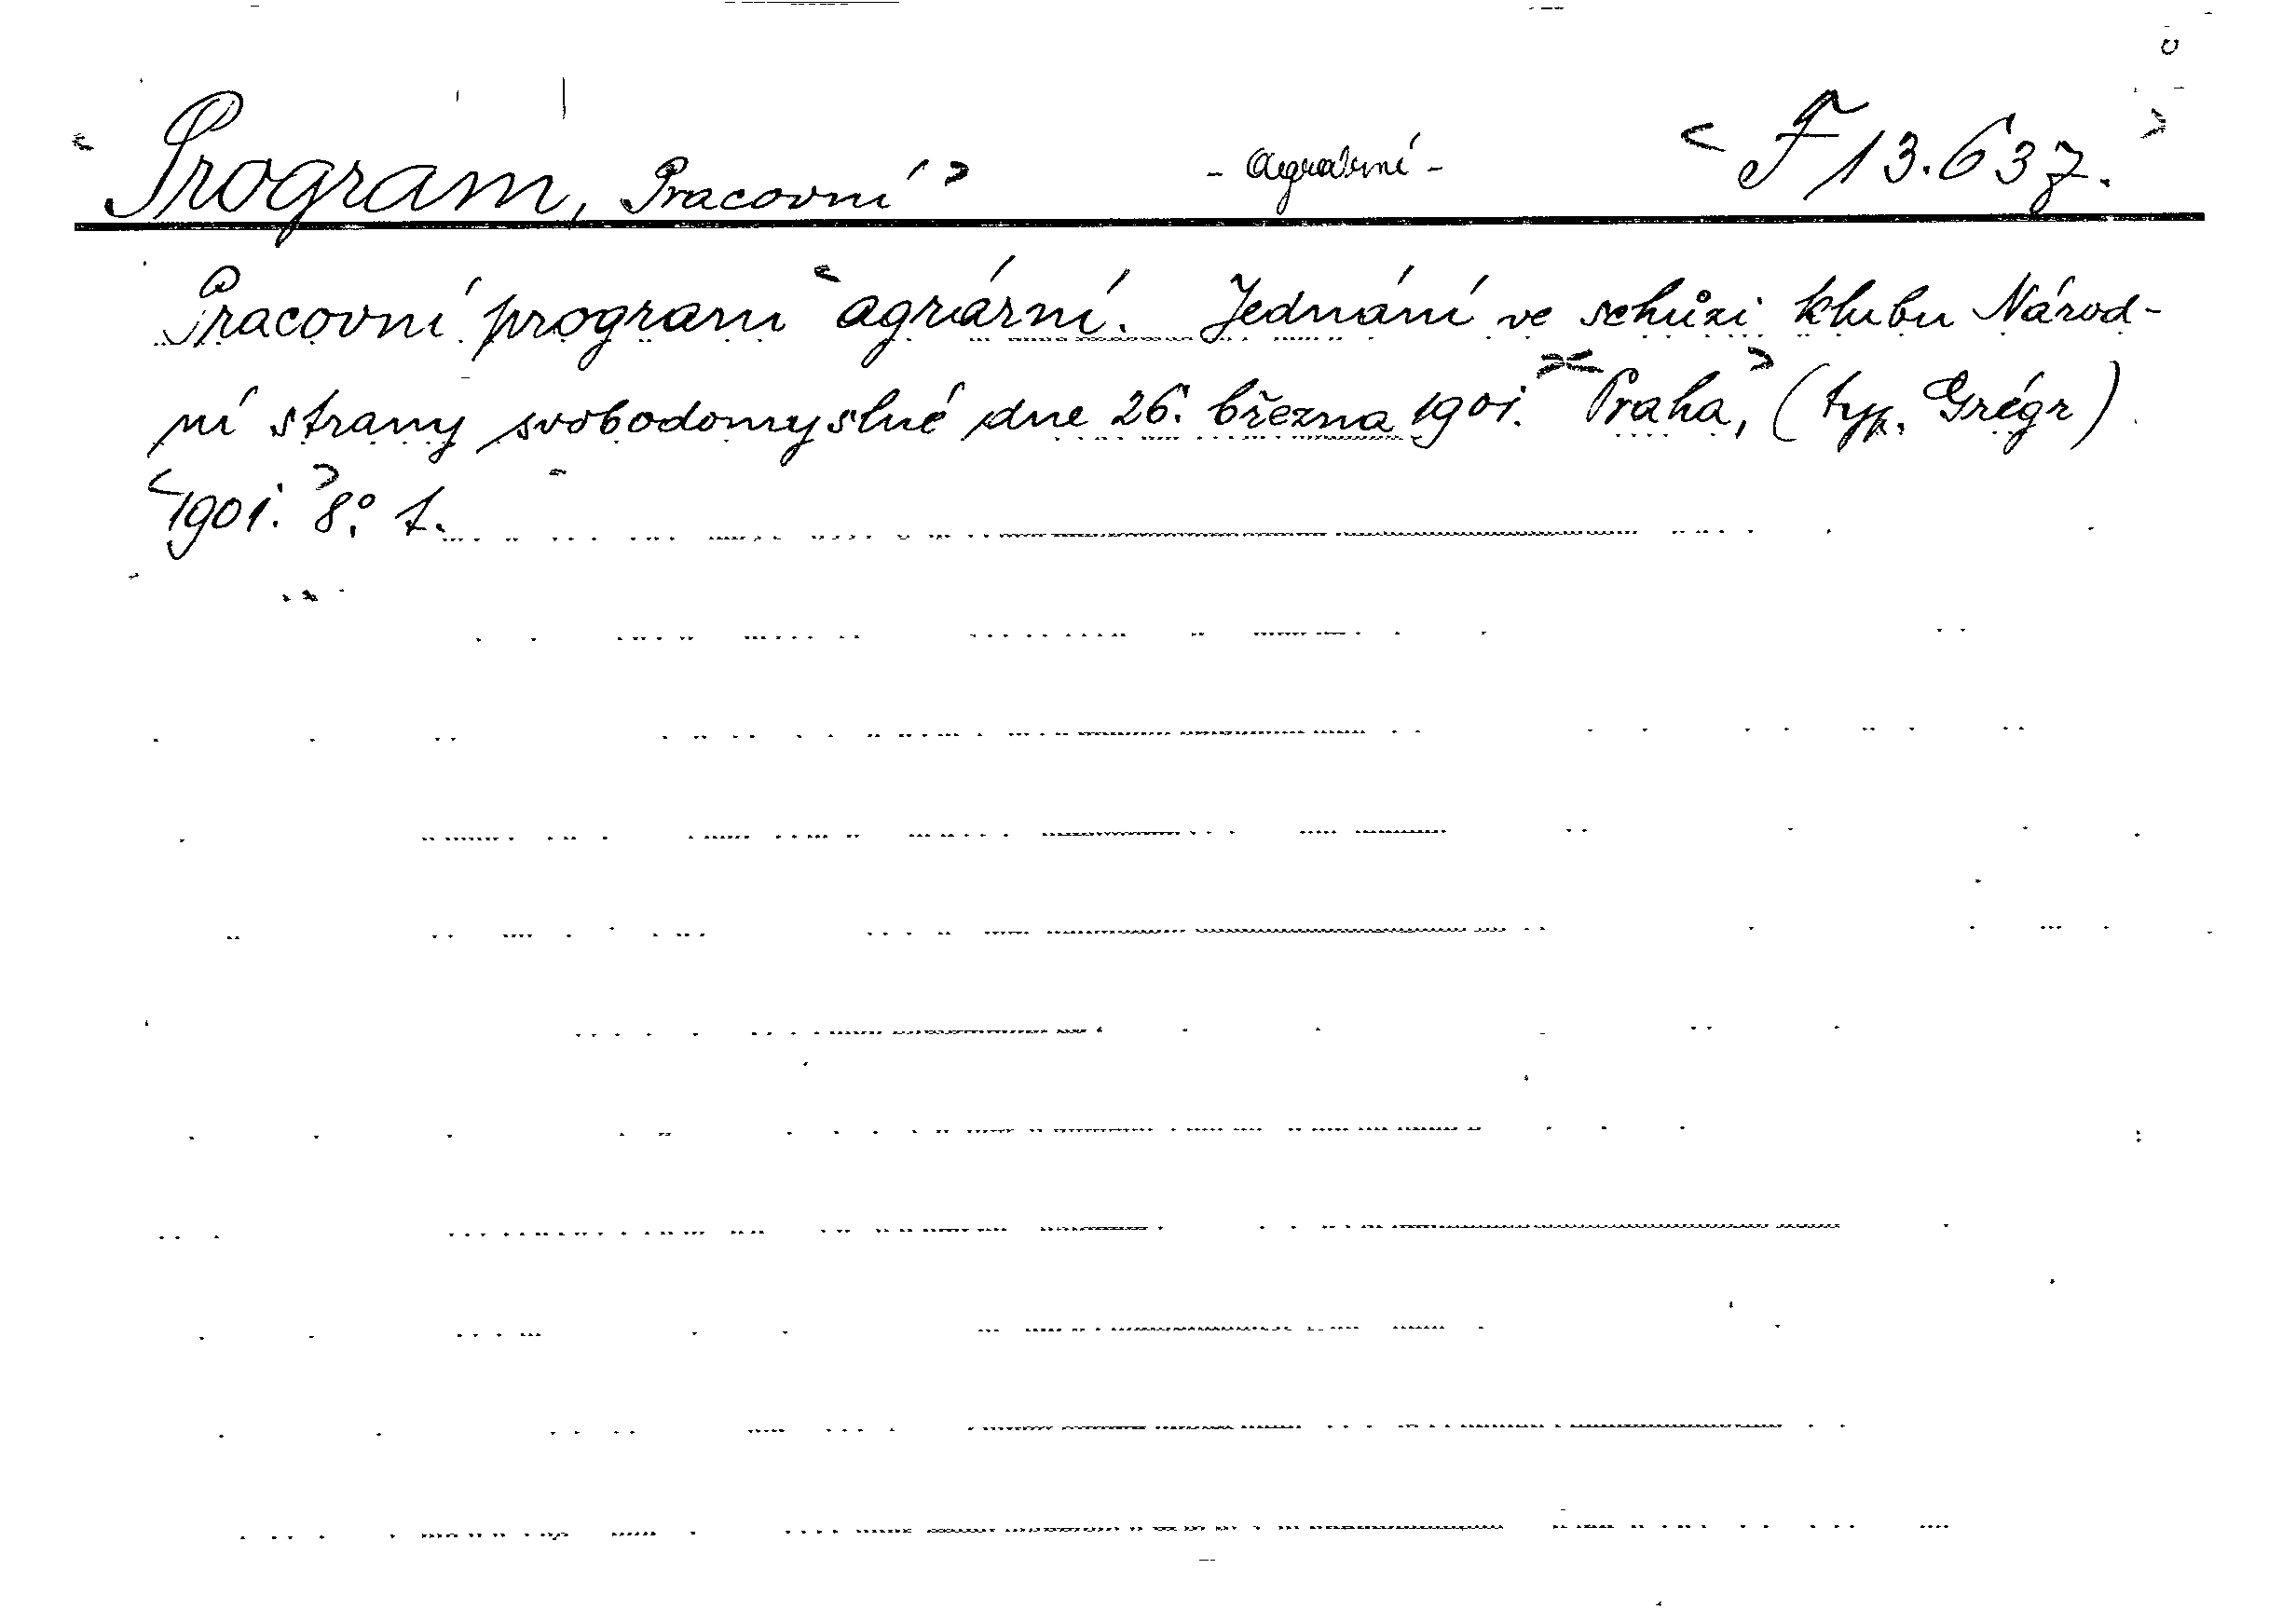 Program, Pracovní - agrární - F 13.637.
Pracovní program agrární. Jednání ve schůzi klubu Národ-
ní strany svobodomyslné dne 26. března 1901. Praha, (typ. Grégr)
1901. 8°. 1.